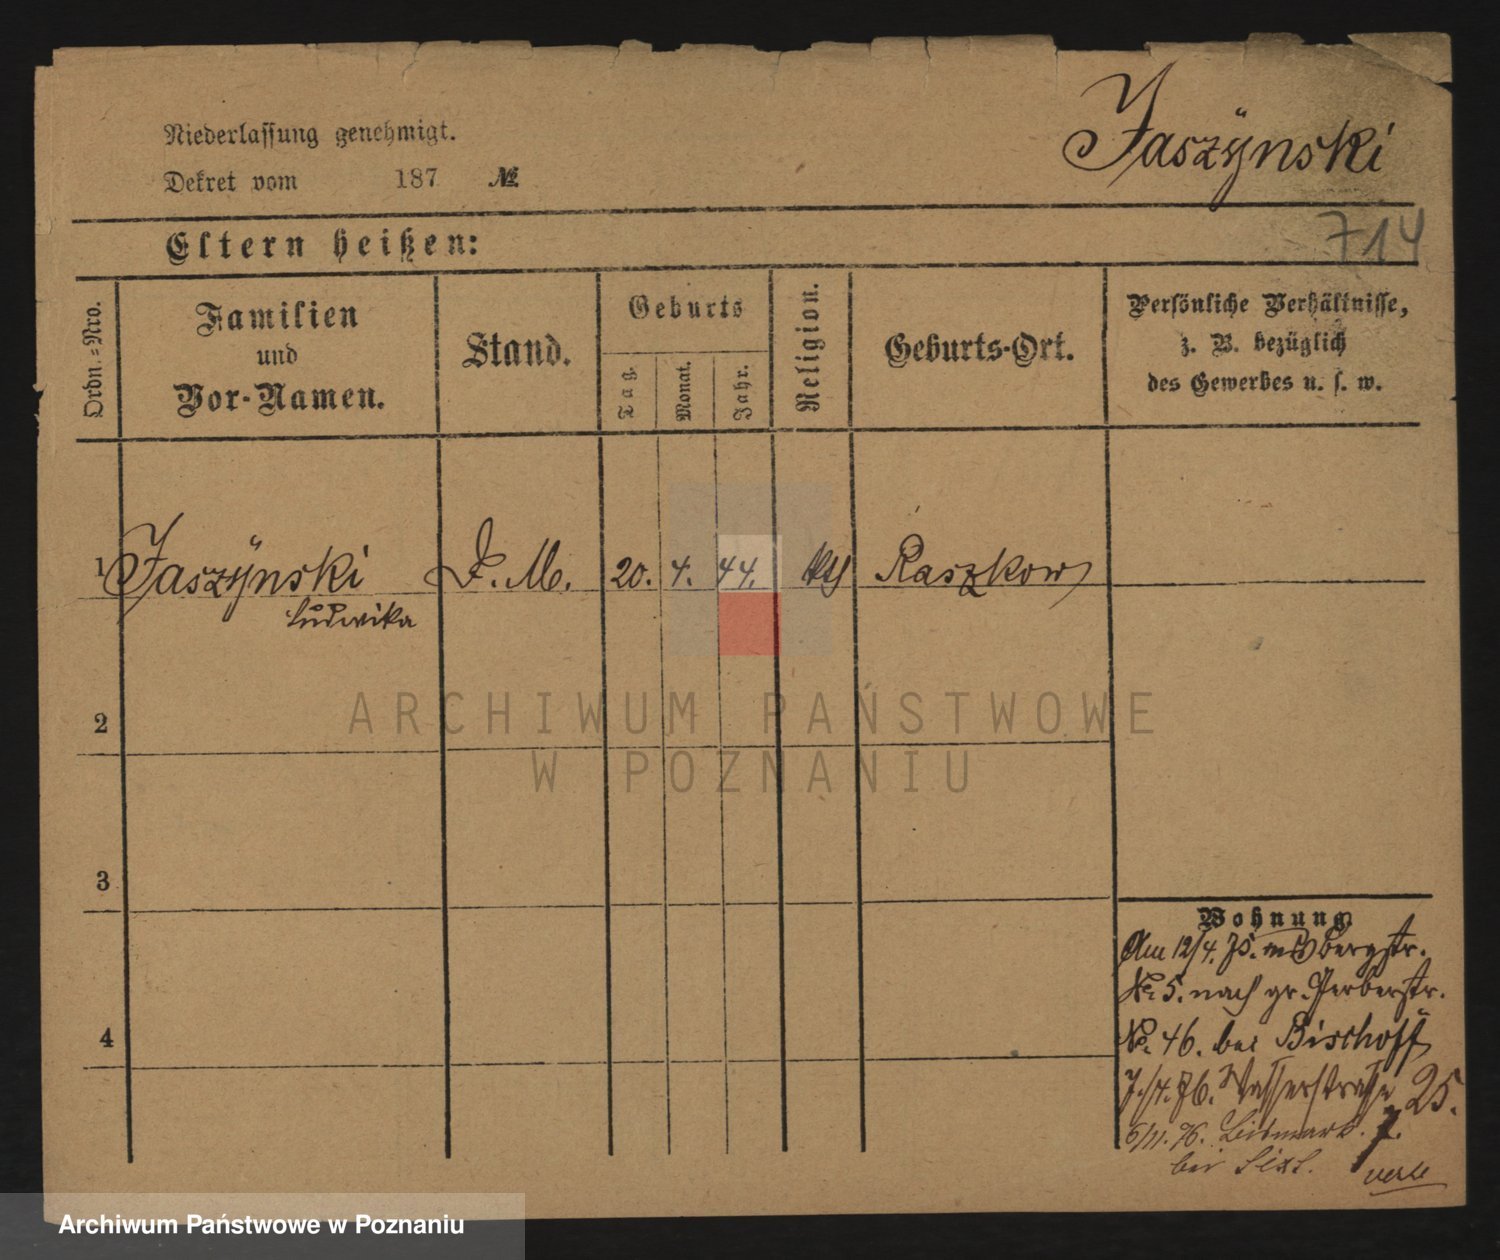 Jaszÿnski
Niederlassung genehmigt.
Dekret vom 187 №
714
Eltern heißen:
Ordn.=Nro.
Familien
und
Vor-Namen.
Stand.
Geburts
Tag.
Monat.
Jahr.
Religion.
Geburts-Ort.
Persönliche Verhältnisse,
z. B. bezüglich
des Gewerbes u. s. w.
1 Jaszÿnski D. M. 20. 4. 44. Raszkow
Ludwika
2
ARCHIWUM PAŃSTWOWE
W POZNANIU
3
Wohnung
Am 12/4. 75. bergstr.
No. 5. nach gr. Gerberstr.
4
No. 46. bei Bischoff
7./4. 76. Wasserstrasse 25.
6/11. 76. Bismark. 7.
bei
Archiwum Państwowe w Poznaniu